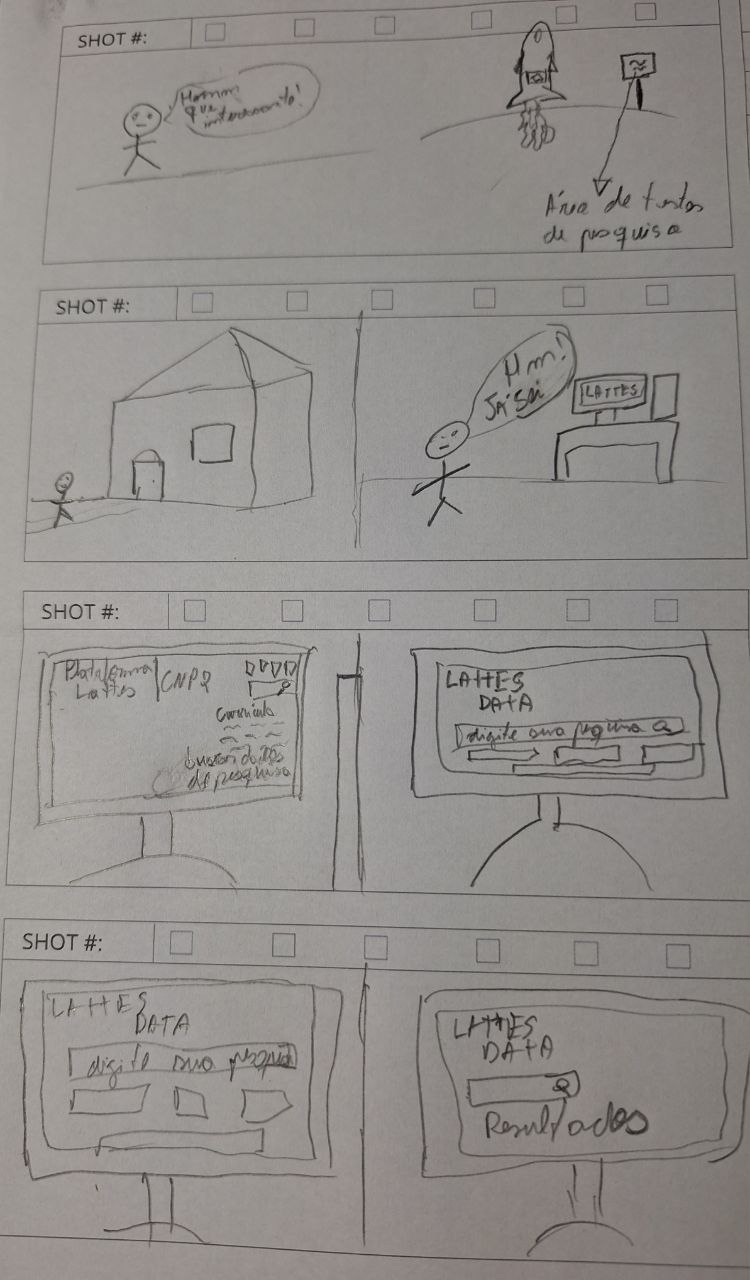 SHOT #:
Hmmm
que
interessante!
Área de testes
de pesquisa
SHOT #:
Hm!
JÁ SEI
LATTES
SHOT #:
Plataforma
Lattes
CNPQ
Currículo
de pesquisa
LATTES
DATA
digite sua
SHOT #:
LATTES
DATA
digite sua
LATTES
DATA
Resultados